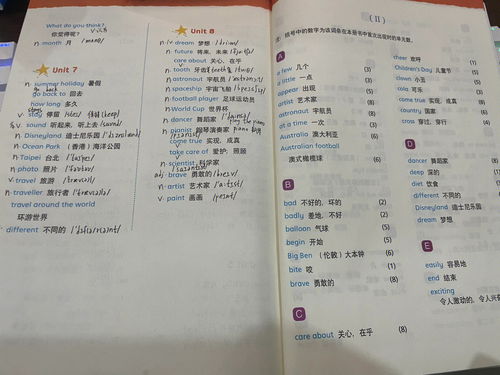 What do you think?
你觉得呢?
n. month 月 /mʌnθ/
Unit 7
n. summer holiday 暑假
go back to 回去
how long 多久
v. stay 停留 (keep)
sound 听起来, 听上去 /saund/
n. Disneyland 迪士尼乐园
n. Ocean Park (香港) 海洋公园
n. Taipei 台北
n. photo 照片
v. travel 旅游
n. traveller 旅行者
travel around the world
环游世界
different 不同的
Unit 8
n./v. dream 梦想 /driːm/
n. future 将来, 未来
care about 关心, 在乎
n. tooth 牙齿
n. astronaut 宇航员
n. spaceship 宇宙飞船
n. football player 足球运动员
n. World Cup 世界杯
n. dancer 舞蹈家
n. pianist 钢琴演奏家
come true 实现, 成真
take care of 爱护; 照顾
n. scientist 科学家
adj. brave 勇敢的 /breɪv/
n. artist 艺术家
v. paint 画画 /peɪnt/
(II)
注: 括号中的数字为该词条在本册书中首次出现时的单元数。
A
a few 几个 (3)
a little 一点 (3)
appear 出现 (5)
artist 艺术家 (8)
astronaut 宇航员 (8)
at a time 一次 (3)
Australia 澳大利亚 (6)
Australian football
澳式橄榄球 (6)
B
bad 不好的, 坏的 (2)
badly 差地, 不好 (2)
balloon 气球 (5)
begin 开始 (5)
Big Ben (伦敦) 大本钟 (6)
bite 咬 (1)
brave 勇敢的 (8)
C
care about 关心, 在乎 (8)
cheer 欢呼
Children's Day 儿童节
clown 小丑
cola 可乐
come true 实现, 成真
country 国家
cross 穿过, 穿行
D
dancer 舞蹈家
deep 深的
diet 饮食
different 不同的
Disneyland 迪士尼乐园
dream 梦想
E
easily 容易地
end 结束
exciting
令人激动的, 令人兴奋